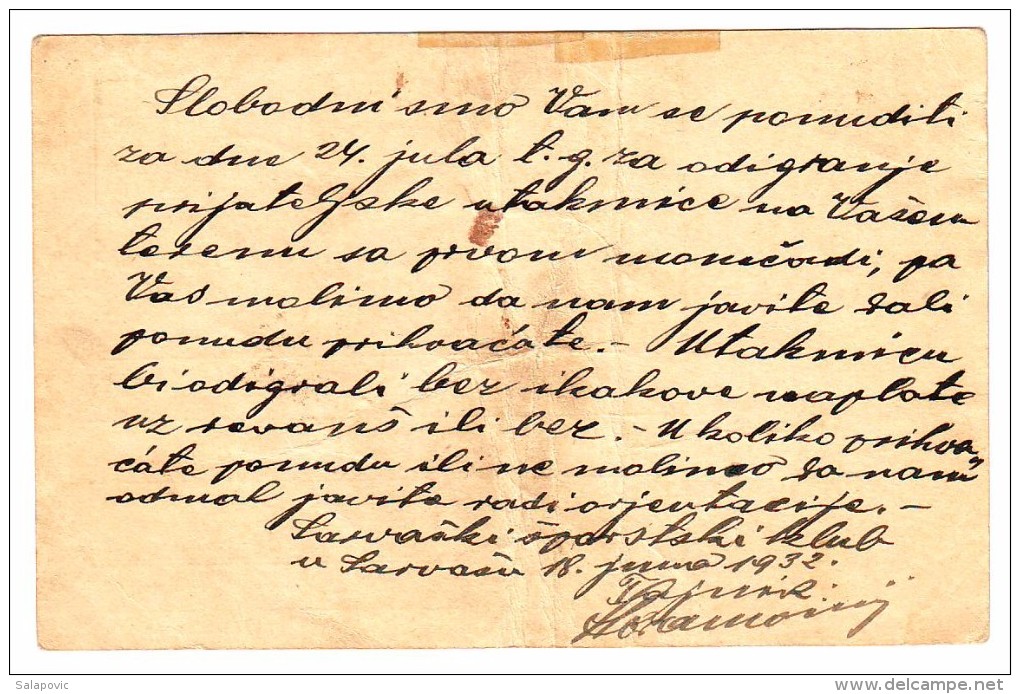 Slobodni smo Vam se ponuditi
za dne 24. jula t. g. za odigranje
prijateljske utakmice na Vašem
terenu sa prvom momčadi, pa
Vas molimo da nam javite dali
ponudu prihvaćate. - Utakmicu
bi odigrali bez ikakove naplate
uz revanš ili bez. - Ukoliko prihva-
ćate ponudu ili ne molimo da nam
odmah javite radi orjentacije. -
Sarvaški športski klub
u Sarvašu 18. juna 1932.
Tajnik:
Salapovic
www.delcampe.net